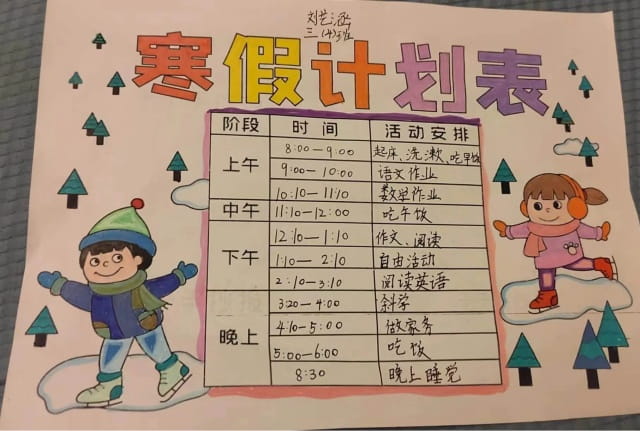 刘艺涵
三(4)班
寒假计划表
阶段 时间 活动安排
上午 8:00—9:00 起床、洗漱、吃早饭
9:00—10:00 语文作业
10:10—11:10 数学作业
中午 11:10—12:00 吃午饭
下午 12:10—1:10 作文、阅读
1:10—2:10 自由活动
2:10—3:10 阅读英语
晚上 3:20—4:00 斜学
4:10—5:00 做家务
5:00—6:00 吃饭
8:30 晚上睡觉